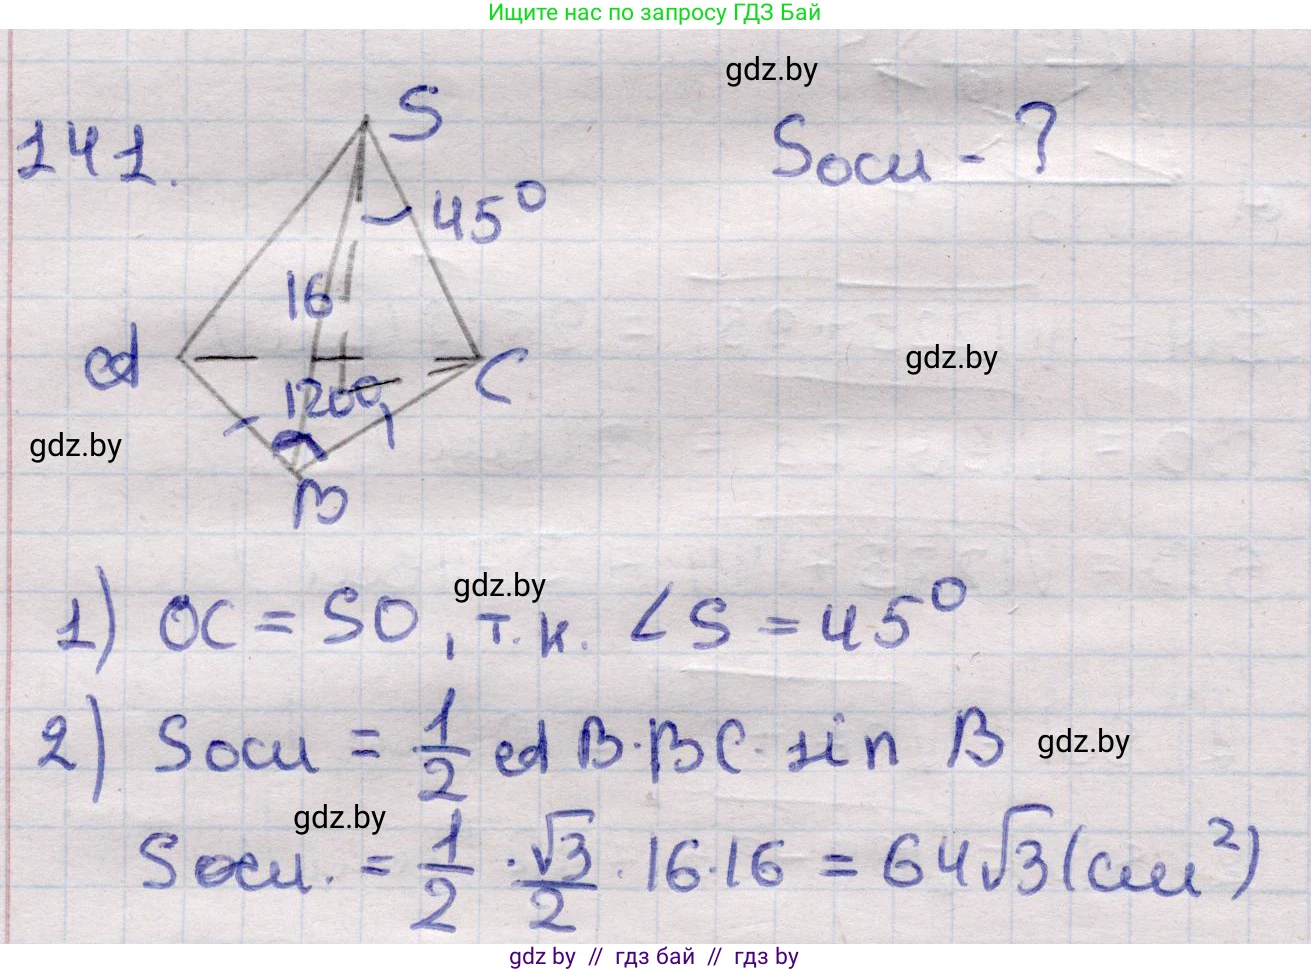 Ищите нас по запросу ГДЗ Бай
gdz.by
141.
S
Sосн - ?
45°
16
A
C
gdz.by
120°
gdz.by
B
gdz.by
1) OC = SO, т.к. ∠S = 45°
2) Sосн = 1/2 AB·BC·sin B
gdz.by
gdz.by
Sосн. = 1/2 · √3/2 · 16·16 = 64√3 (см²)
gdz.by // гдз бай // гдз by